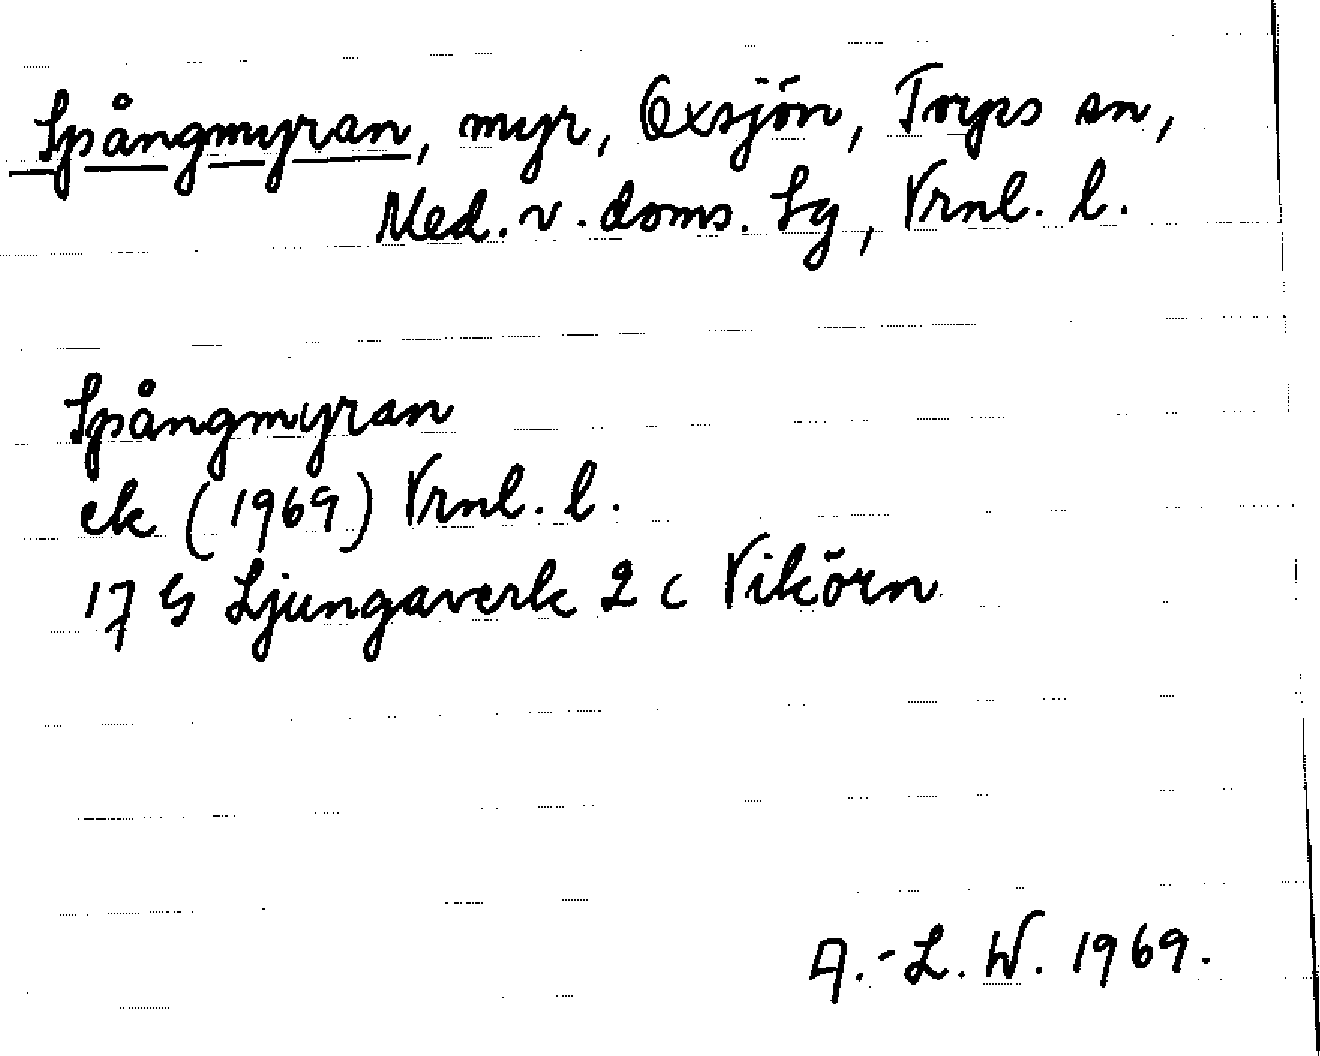 Spångmyran, myr, Oxsjön, Torps sn,
Med. v. doms. Sg, Vrnl. l.
Spångmyran
ek (1969) Vrnl. l.
17 G Ljungaverk 2 c Vikörn
A.-L. W. 1969.